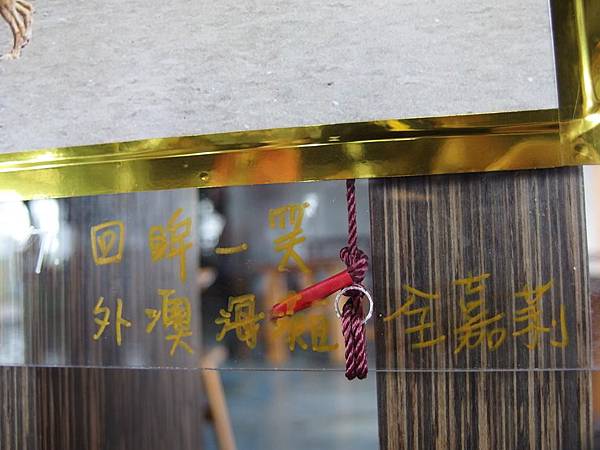 回眸一笑
外澳海 全嘉莉